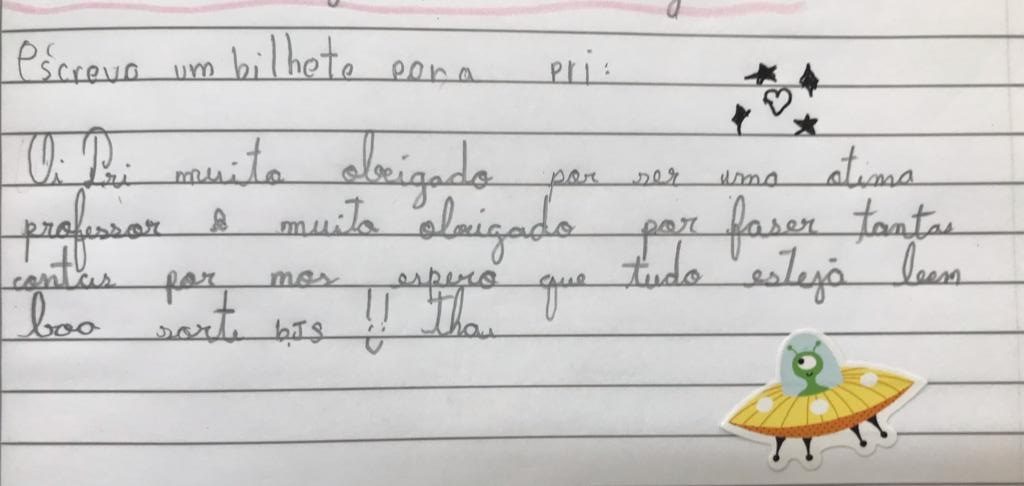 Escreva um bilhete para pri:
Oi Pri muito obrigado por ser uma otima
professor a muito obrigado por faser tantas
contas por mos espero que tudo estejá bem
boa sorte bjs !! thau